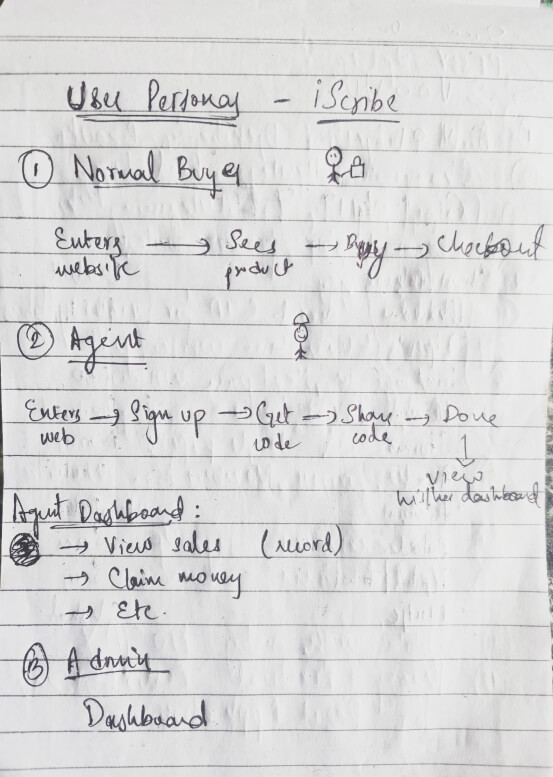 User Personas - iScribe
① Normal Buyer
Enters website → Sees product → Buy → Checkout
② Agent
Enters web → Sign up → Get code → Share code → Done
↓
View
his/her dashboard
Agent Dashboard:
→ View sales (record)
→ Claim money
→ Etc.
③ Admin
Dashboard